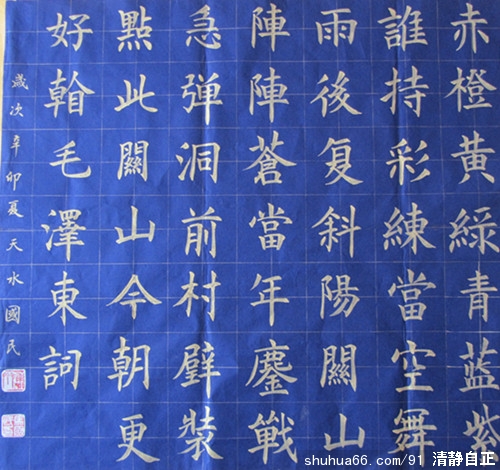 赤橙黄綠青蓝紫
誰持彩練當空舞
雨後复斜陽關山
陣陣蒼當年鏖戰
急弹洞前村壁裝
點此關山今朝更
好翰毛澤東詞
歲次辛卯夏天水國民
shuhua66.com/91 清静自正